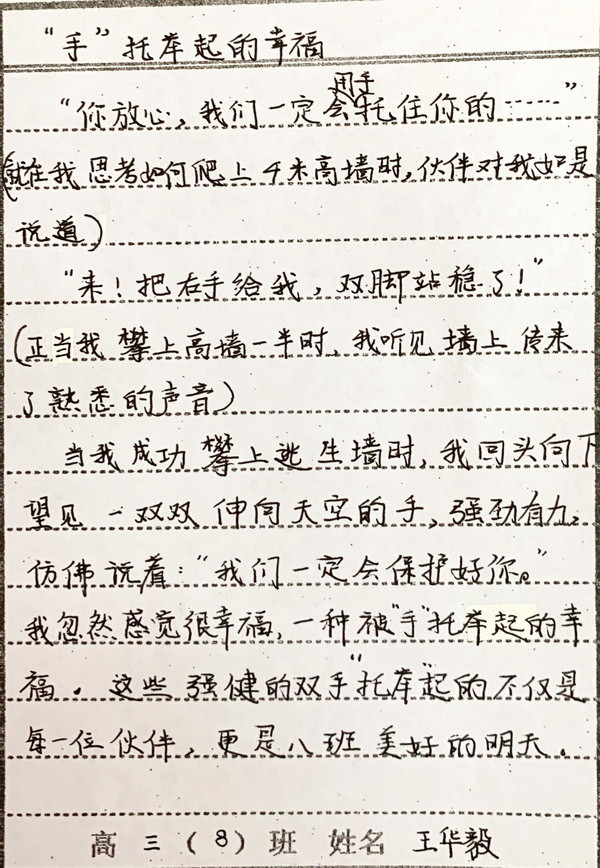 “手”托举起的幸福
“你放心，我们一定会用手托住你的……”
(就在我思考如何爬上4米高墙时，伙伴对我如是
说道)
“来！把右手给我，双脚站稳了！”
(正当我攀上高墙一半时，我听见墙上传来
了熟悉的声音)
当我成功攀上逃生墙时，我回头向下
望见一双双伸向天空的手，强劲有力，
仿佛说着：“我们一定会保护好你。”
我忽然感觉很幸福，一种被“手”托举起的幸
福。这些强健的双手“托举”起的不仅是
每一位伙伴，更是八班美好的明天。
高三(8)班 姓名 王华毅